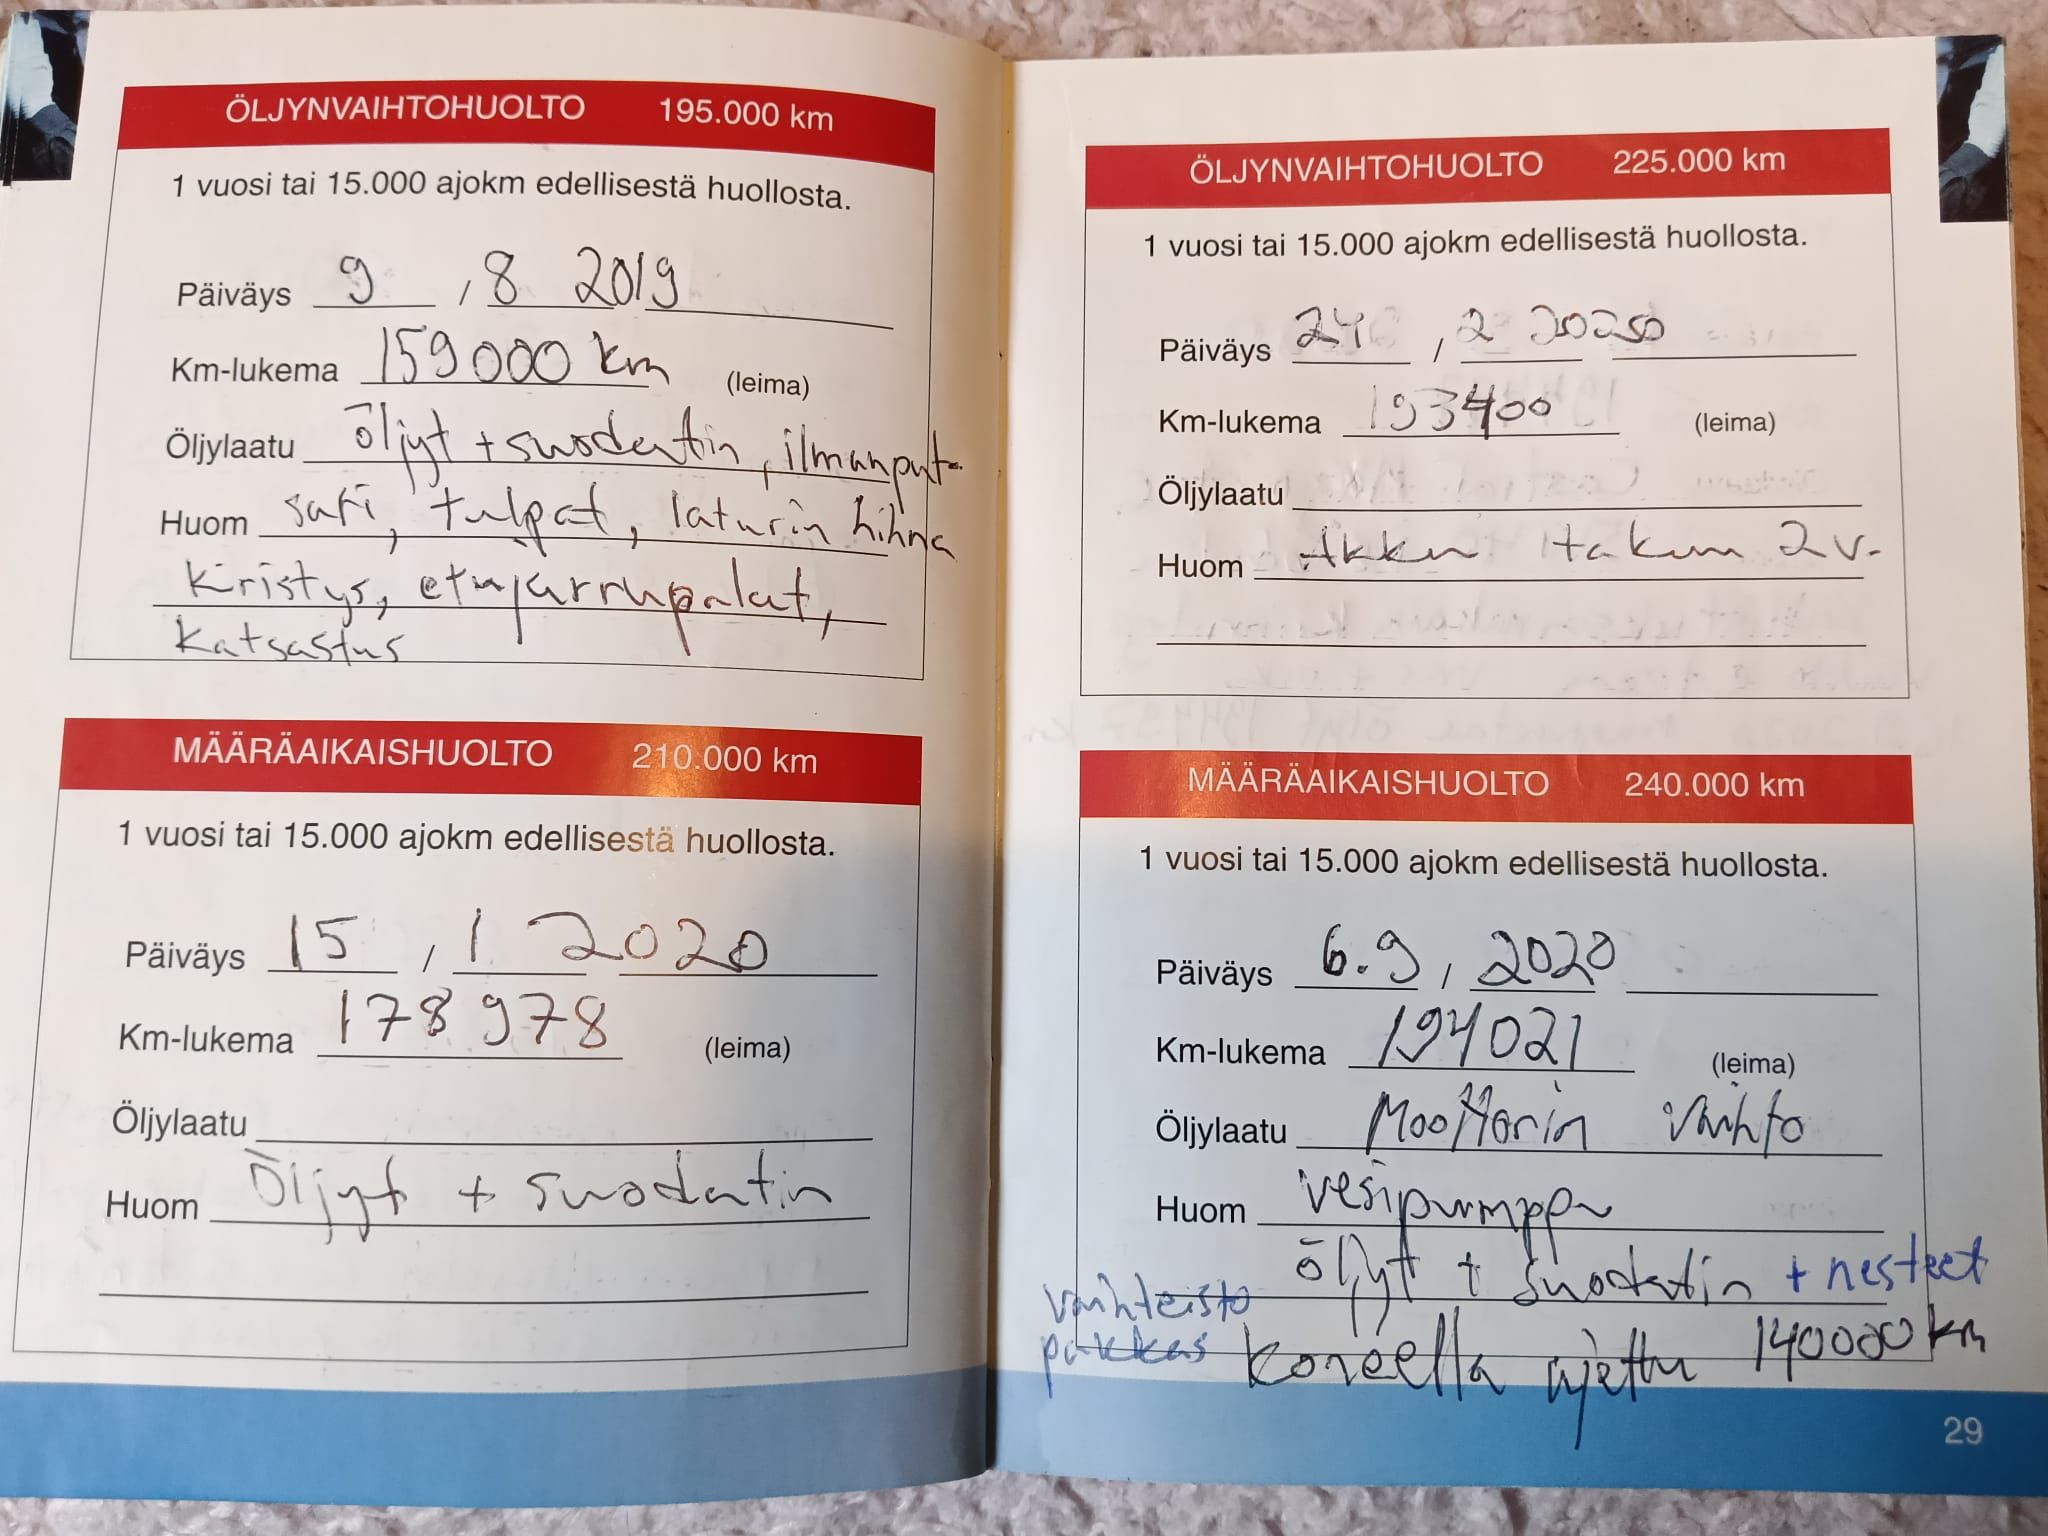 ÖLJYNVAIHTOHUOLTO 195.000 km
1 vuosi tai 15.000 ajokm edellisestä huollosta.
Päiväys 9 / 8 2019
Km-lukema 159000 km (leima)
Öljylaatu öljyt + suodatin, ilmanput-
Huom sari, tulpat, laturin hihna
kiristys, etujarrupalat,
katsastus
MÄÄRÄAIKAISHUOLTO 210.000 km
1 vuosi tai 15.000 ajokm edellisestä huollosta.
Päiväys 15 / 1 2020
Km-lukema 178 978 (leima)
Öljylaatu
Huom Öljyt + suodatin
ÖLJYNVAIHTOHUOLTO 225.000 km
1 vuosi tai 15.000 ajokm edellisestä huollosta.
Päiväys / 2
Km-lukema 193400 (leima)
Öljylaatu
Huom Akku takuu 2v.
MÄÄRÄAIKAISHUOLTO 240.000 km
1 vuosi tai 15.000 ajokm edellisestä huollosta.
Päiväys 6.9 / 2020
Km-lukema 194021 (leima)
Öljylaatu Moottorin vaihto
Huom vesipumppu
öljyt + suodatin + nesteet
vaihteisto
pakkas koneella ajettu 140000 km
29